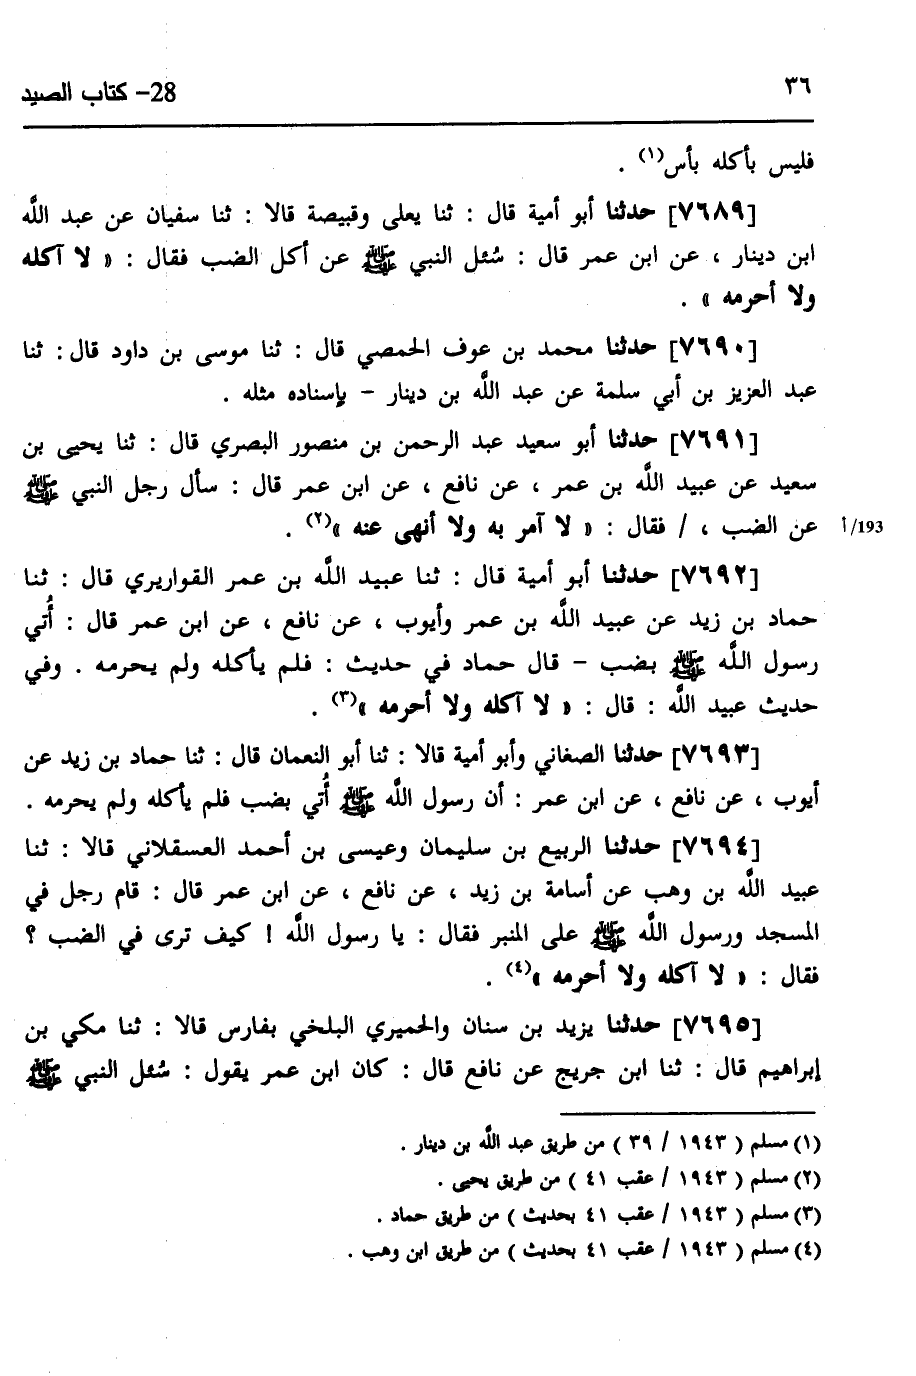 ٣٦
28- كتاب الصيد
فليس بأكله بأس(١) .
[٧٦٨٩] حدثنا أبو أمية قال : ثنا يعلى وقبيصة قالا : ثنا سفيان عن عبد اللَّه
ابن دينار ، عن ابن عمر قال : سُئل النبي ﷺ عن أكل الضب فقال : « لا آكله
ولا أحرمه » .
[٧٦٩٠] حدثنا محمد بن عوف الحمصي قال : ثنا موسى بن داود قال : ثنا
عبد العزيز بن أبي سلمة عن عبد اللَّه بن دينار – بإسناده مثله .
[٧٦٩١] حدثنا أبو سعيد عبد الرحمن بن منصور البصري قال : ثنا يحيى بن
سعيد عن عبيد اللَّه بن عمر ، عن نافع ، عن ابن عمر قال : سأل رجل النبي ﷺ
عن الضب ، / فقال : « لا آمر به ولا أنهى عنه »(٢) .
193/أ
[٧٦٩٢] حدثنا أبو أمية قال : ثنا عبيد اللَّه بن عمر القواريري قال : ثنا
حماد بن زيد عن عبيد اللَّه بن عمر وأيوب ، عن نافع ، عن ابن عمر قال : أُتي
رسول اللَّه ﷺ بضب – قال حماد في حديث : فلم يأكله ولم يحرمه . وفي
حديث عبيد اللَّه : قال : « لا آكله ولا أحرمه »(٣) .
[٧٦٩٣] حدثنا الصغاني وأبو أمية قالا : ثنا أبو النعمان قال : ثنا حماد بن زيد عن
أيوب ، عن نافع ، عن ابن عمر : أن رسول اللَّه ﷺ أُتي بضب فلم يأكله ولم يحرمه .
[٧٦٩٤] حدثنا الربيع بن سليمان وعيسى بن أحمد العسقلاني قالا : ثنا
عبيد اللَّه بن وهب عن أسامة بن زيد ، عن نافع ، عن ابن عمر قال : قام رجل في
المسجد ورسول اللَّه ﷺ على المنبر فقال : يا رسول اللَّه ! كيف ترى في الضب ؟
فقال : « لا آكله ولا أحرمه »(٤) .
[٧٦٩٥] حدثنا يزيد بن سنان والحميري البلخي بفارس قالا : ثنا مكي بن
إبراهيم قال : ثنا ابن جريج عن نافع قال : كان ابن عمر يقول : سُئل النبي ﷺ
(١) مسلم ( ١٩٤٣ / ٣٩ ) من طريق عبد اللَّه بن دينار .
(٢) مسلم ( ١٩٤٣ / عقب ٤١ ) من طريق يحيى .
(٣) مسلم ( ١٩٤٣ / عقب ٤١ بحديث ) من طريق حماد .
(٤) مسلم ( ١٩٤٣ / عقب ٤١ بحديث ) من طريق ابن وهب .